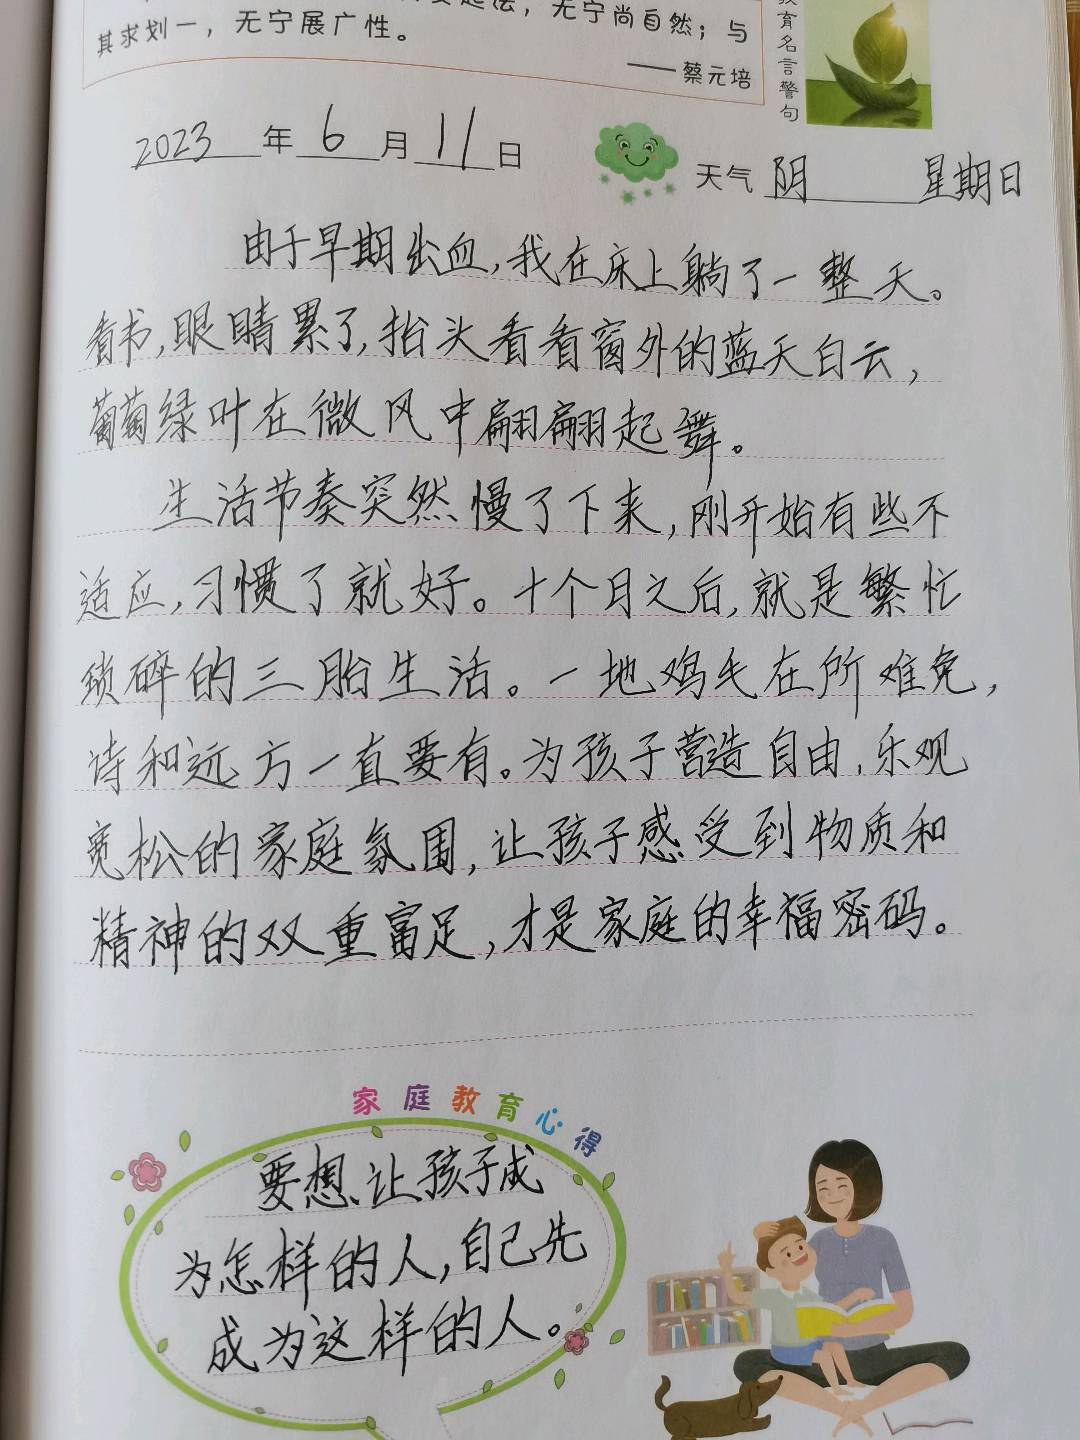 无宁尚自然；与
其求划一，无宁展广性。
——蔡元培
育名言警句
2023年6月11日
天气 阴 星期日
由于早期出血，我在床上躺了一整天。
看书，眼睛累了，抬头看看窗外的蓝天白云，
葡萄绿叶在微风中翩翩起舞。
生活节奏突然慢了下来，刚开始有些不
适应，习惯了就好。十个月之后，就是繁忙
锁碎的三胎生活。一地鸡毛在所难免，
诗和远方一直要有。为孩子营造自由，乐观
宽松的家庭氛围，让孩子感受到物质和
精神的双重富足，才是家庭的幸福密码。
家庭教育心得
要想让孩子成
为怎样的人，自己先
成为这样的人。